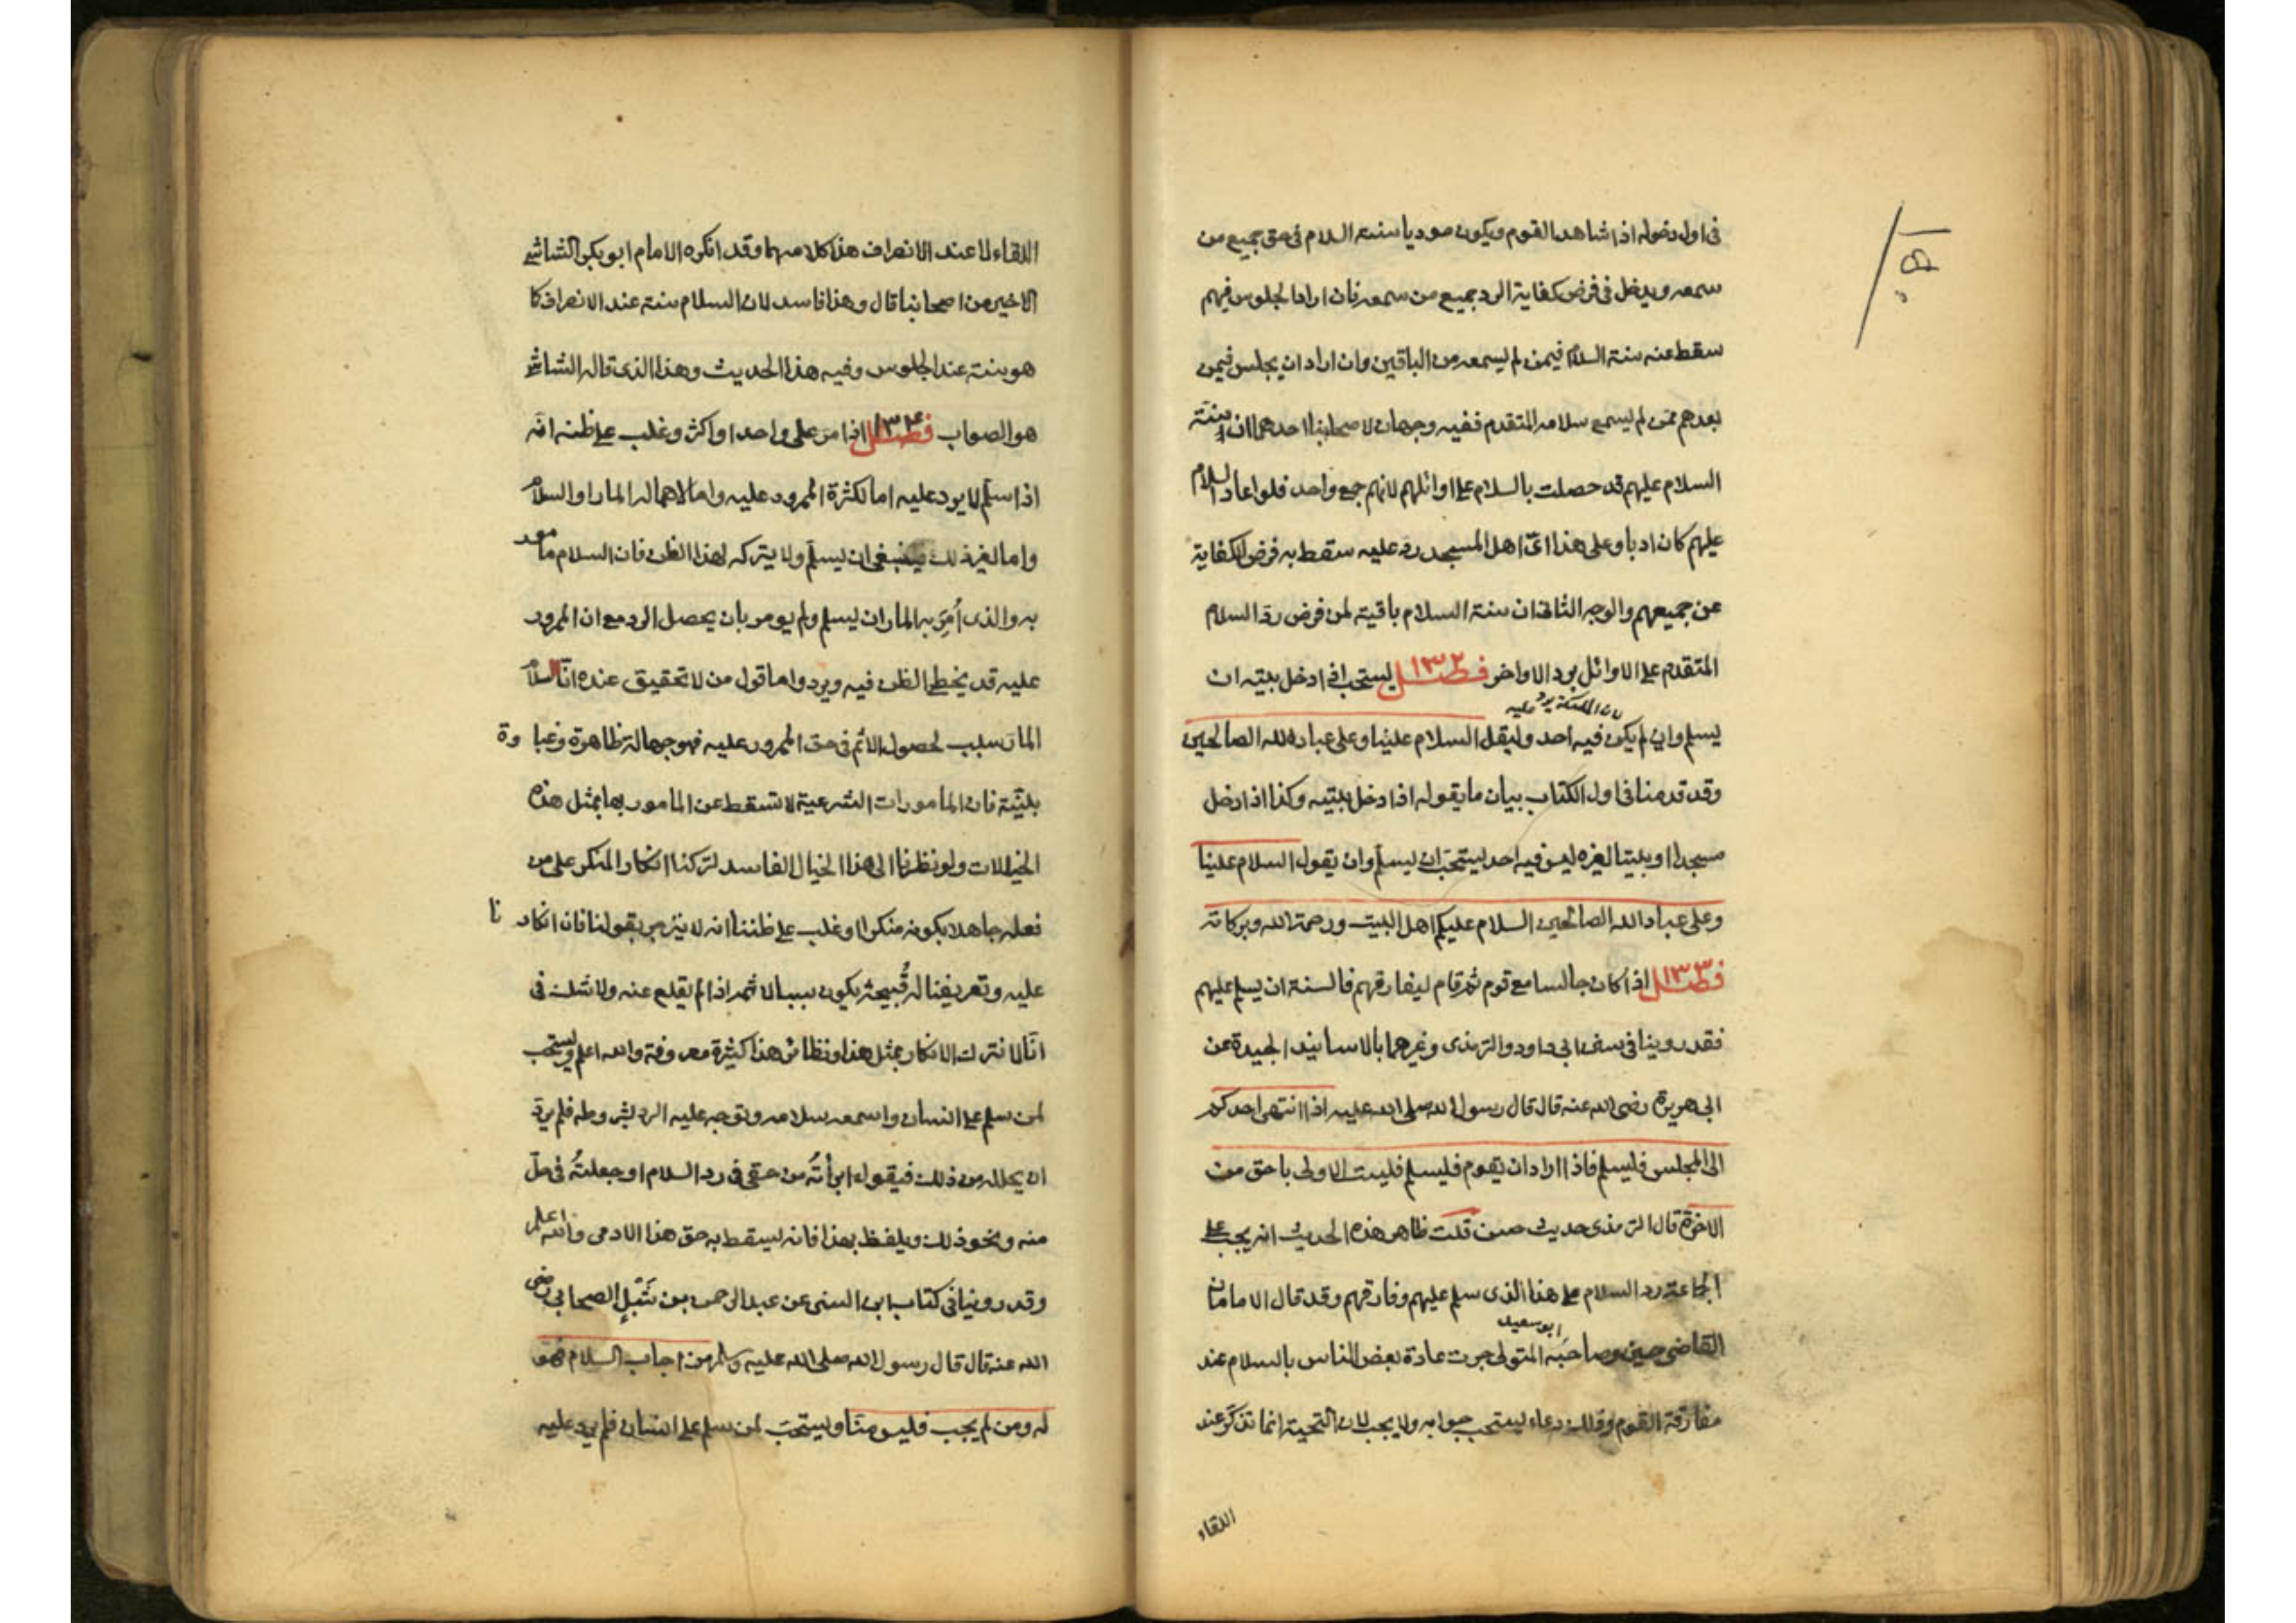 فى اول دخوله اذا شاهد القوم ويكون موديا سنته السلام فى حق جميع من
سمعه ويدخل فى فرض كفاية الرد جميع من سمعه فان اراد الجلوس فيهم
سقط عنه سنة السلام فيمن لم يسمعه من الباقين وان اراد ان يجلس فيمن
بعدهم ممن لم يسمع سلامه المتقدم ففيه وجهان لاصحابنا احدهما ان سنة
السلام عليهم قد حصلت بالسلام على اوائلهم لانهم جمع واحد فلو اعاد السلام
عليهم كان ادبا وعلى هذا اىّ اهل المسجد رد عليه سقط به فرض الكفاية
عن جميعهم والوجه الثانى ان سنة السلام باقية لمن فرض ردّ السلام
المتقدم على الاوائل برد الاواخر فصل ١٣٢ يستحب اذا دخل بيته ان
لان الملئكة يردّ عليه
يسلم وان لم يكن فيه احد وليقل السلام علينا وعلى عباد الله الصالحين
وقد قدمنا فى اول الكتاب بيان ما يقوله اذا دخل بيته وكذا اذا دخل
مسجدا او بيتا لغيره ليس فيه احد يستحبّ ان يسلّم وان يقول السلام علينا
وعلى عباد الله الصالحين السلام عليكم اهل البيت ورحمة الله وبركاته
فصل ١٣٣ اذا كان جالسا مع قوم ثم قام ليفارقهم فالسنة ان يسلم عليهم
فقد روينا فى سنن ابى داود والترمذى وغيرهما بالاسانيد الجيدة عن
ابى هريرة رضى الله عنه قال قال رسول الله صلى الله عليه اذا انتهى احدكم
الى المجلس فليسلم فاذا اراد ان يقوم فليسلم فليست الاولى باحق من
الاخرة قال الترمذى حديث حسن قلت ظاهر هذه الحديث انه يجب على
الجماعة رد السلام على هذا الذى سلم عليهم وفارقهم وقد قال الامامان
ابو سعيد
القاضى حسين وصاحبه المتولى جرت عادة بعض الناس بالسلام عند
مفارقة القوم وذلك دعاء يستحب جوابه ولا يجب لان التحية انما تذكر عند
اللقاء
اللقاء لا عند الانصراف هذا كلامهما وقد انكره الامام ابو بكر الشاشى
الاخير من اصحابنا قال وهذا فاسد لان السلام سنة عند الانصراف كا
هو سنة عند الجلوس وفيه هذا الحديث وهذا الذى قاله الشاشى
هو الصواب فصل ١٣٤ اذا مر على واحد او اكثر وغلب على ظنه انّه
اذا سلّم لا يرد عليه اما لكثرة الممرور عليه واما لاهماله المار او السلام
واما لغير ذلك فينبغى ان يسلّم ولا يتركه لهذا الظن فان السلام مامور
به والذى اُمِرَ به المار ان يسلم ولم يومر بان يحصل الرد مع ان الممرور
عليه قد يخطى الظن فيه ويرد واما قول من لا تحقيق عنده انّ السلام
المار سبب لحصول الاثم فى حق الممرور عليه فهو جهالة ظاهرة وغباوة
بيّنة فان المامورات الشرعية لا تسقط عن المامور بها بمثل هذه
الخيالات ولو نظرنا الى هذا الخيال الفاسد لتركنا انكار المنكر على من
فعله جاهلا بكونه منكرا وغلب على ظننا انه لا ينزجر بقولنا فان انكارنا
عليه وتعريفنا له قُبحه يكون سببا لاثمه اذا لم يقلع عنه ولا شك فى
انّا لا نترك الانكار بمثل هذا ونظائر هذا كثيرة معروفة والله اعلم ويستحب
لمن سلم على انسان واسمعه سلامه وتوجه عليه الرد بشروطه فلم يردّ
ان يحلله من ذلك فيقول ابرأتُه من حقى فى رد السلام او جعلتُه فى حلّ
منه ونحو ذلك ويلفظ بهذا فانه يسقط به حق هذا الادمى والله اعلم
وقد روينا فى كتاب ابن السنى عن عبد الرحمن بن شَبْل الصحابى رضى
الله عنه قال قال رسول الله صلى الله عليه وسلم من اجاب السلام فهو
له ومن لم يجب فليس منّا ويستحبّ لمن سلم على انسان فلم يرد عليه